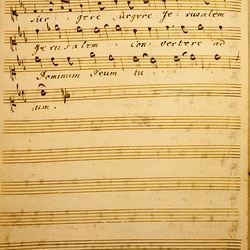 sur- gere surgere Je- rusalem
Jerusalem con- vertere ad
Dominum Deum tu-
um.